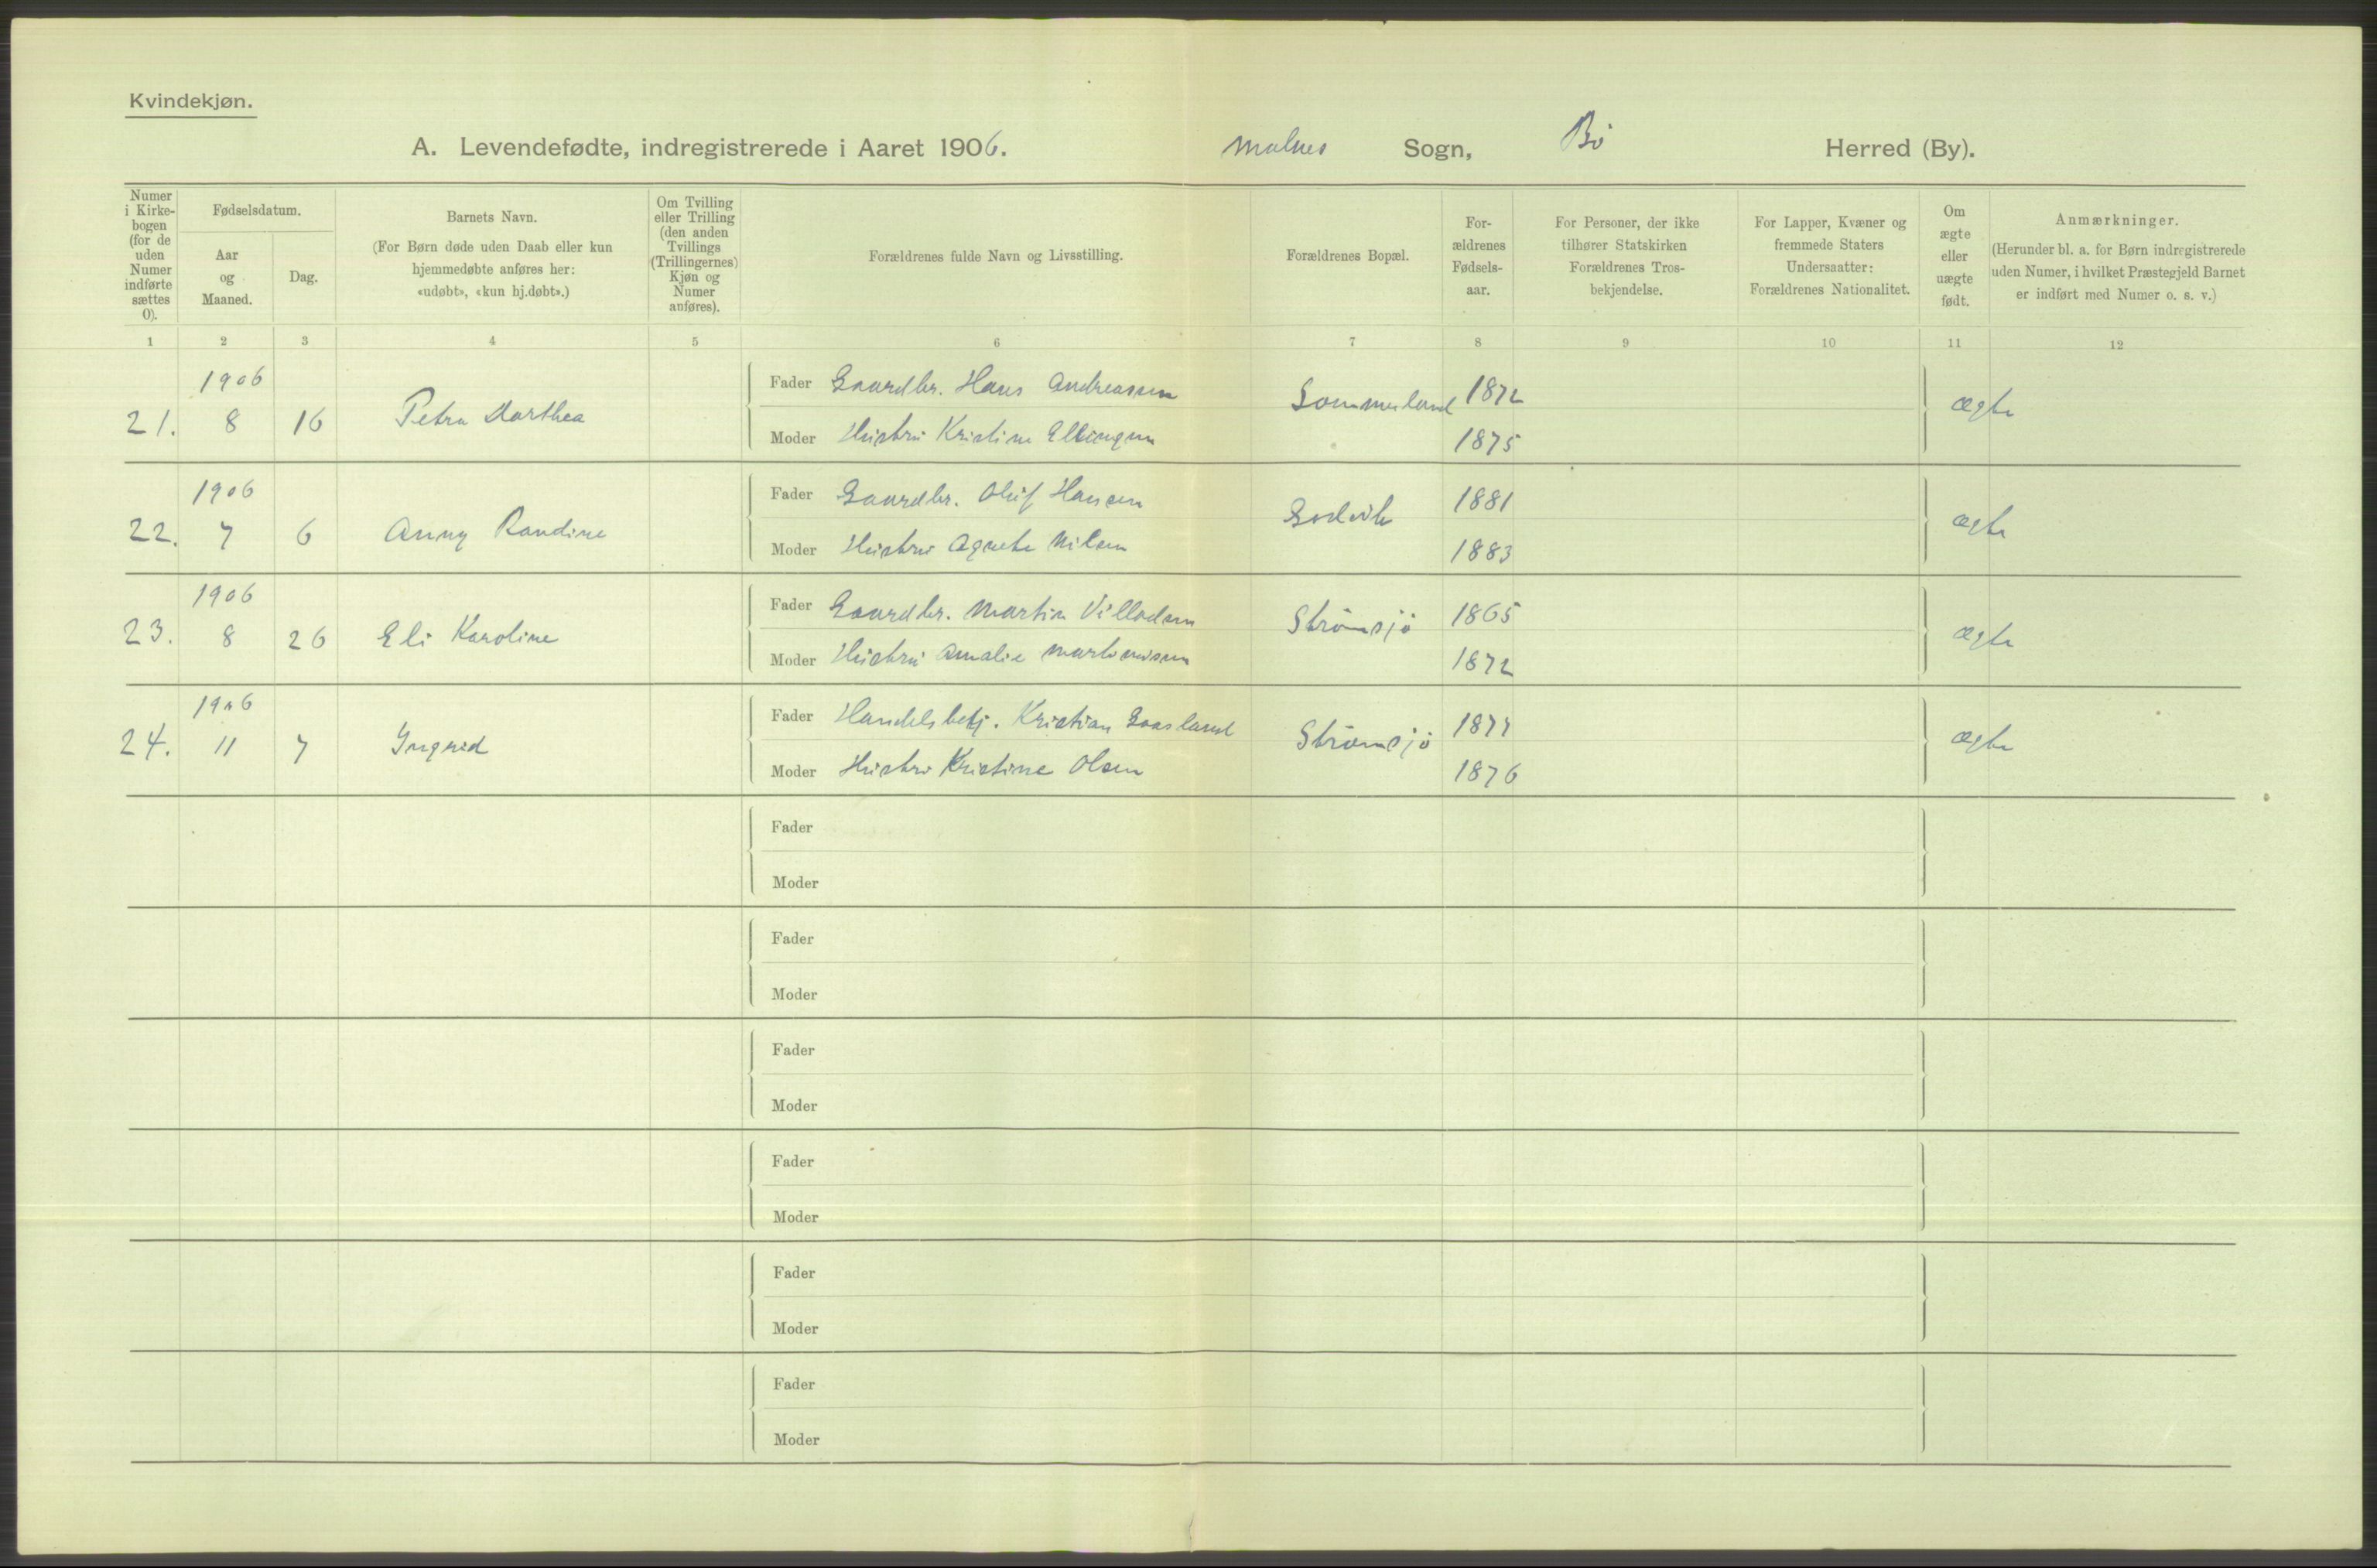 Kvindekjøn.
A. Levendefødte, indregistrerede i Aaret 1906. Malnes Sogn, Bö Herred (By).
Numer i Kirke-bogen (for de uden Numer indførte sættes 0).
Fødselsdatum.
Aar og Maaned.
Dag.
Barnets Navn.
(For Børn døde uden Daab eller kun hjemmedøbte anføres her: «udøbt», «kun hj.døbt».)
Om Tvilling eller Trilling (den anden Tvillings (Trillingernes) Kjøn og Numer anføres).
Forældrenes fulde Navn og Livsstilling.
Forældrenes Bopæl.
For-ældrenes Fødsels-aar.
For Personer, der ikke tilhører Statskirken Forældrenes Tros-bekjendelse.
For Lapper, Kvæner og fremmede Staters Undersaatter: Forældrenes Nationalitet.
Om ægte eller uægte født.
Anmærkninger.
(Herunder bl. a. for Børn indregistrerede uden Numer, i hvilket Præstegjeld Barnet er indført med Numer o. s. v.)
1 2 3 4 5 6 7 8 9 10 11 12
1906
21. 8 16 Petra Dorthea
Fader Gaardbr. Hans Andreassen Sommerland 1872 ægte
Moder Hustru Kristine Ellingsen 1875
1906
22. 7 6 Anny Randine
Fader Gaardbr. Oluf Hansen 1881 ægte
Moder Hustru Agnete Nilsen 1883
1906
23. 8 26 Eli Karoline
Fader Gaardbr. Martin Villadsen Strömsjö 1865 ægte
Moder Hustru Amalie Martinussen 1872
1906
24. 11 7 Ingrid
Fader Handelsbetj. Kristian Gaasland Strömsjö 1877 ægte
Moder Hustru Kristine Olsen 1876
Fader
Moder
Fader
Moder
Fader
Moder
Fader
Moder
Fader
Moder
Fader
Moder